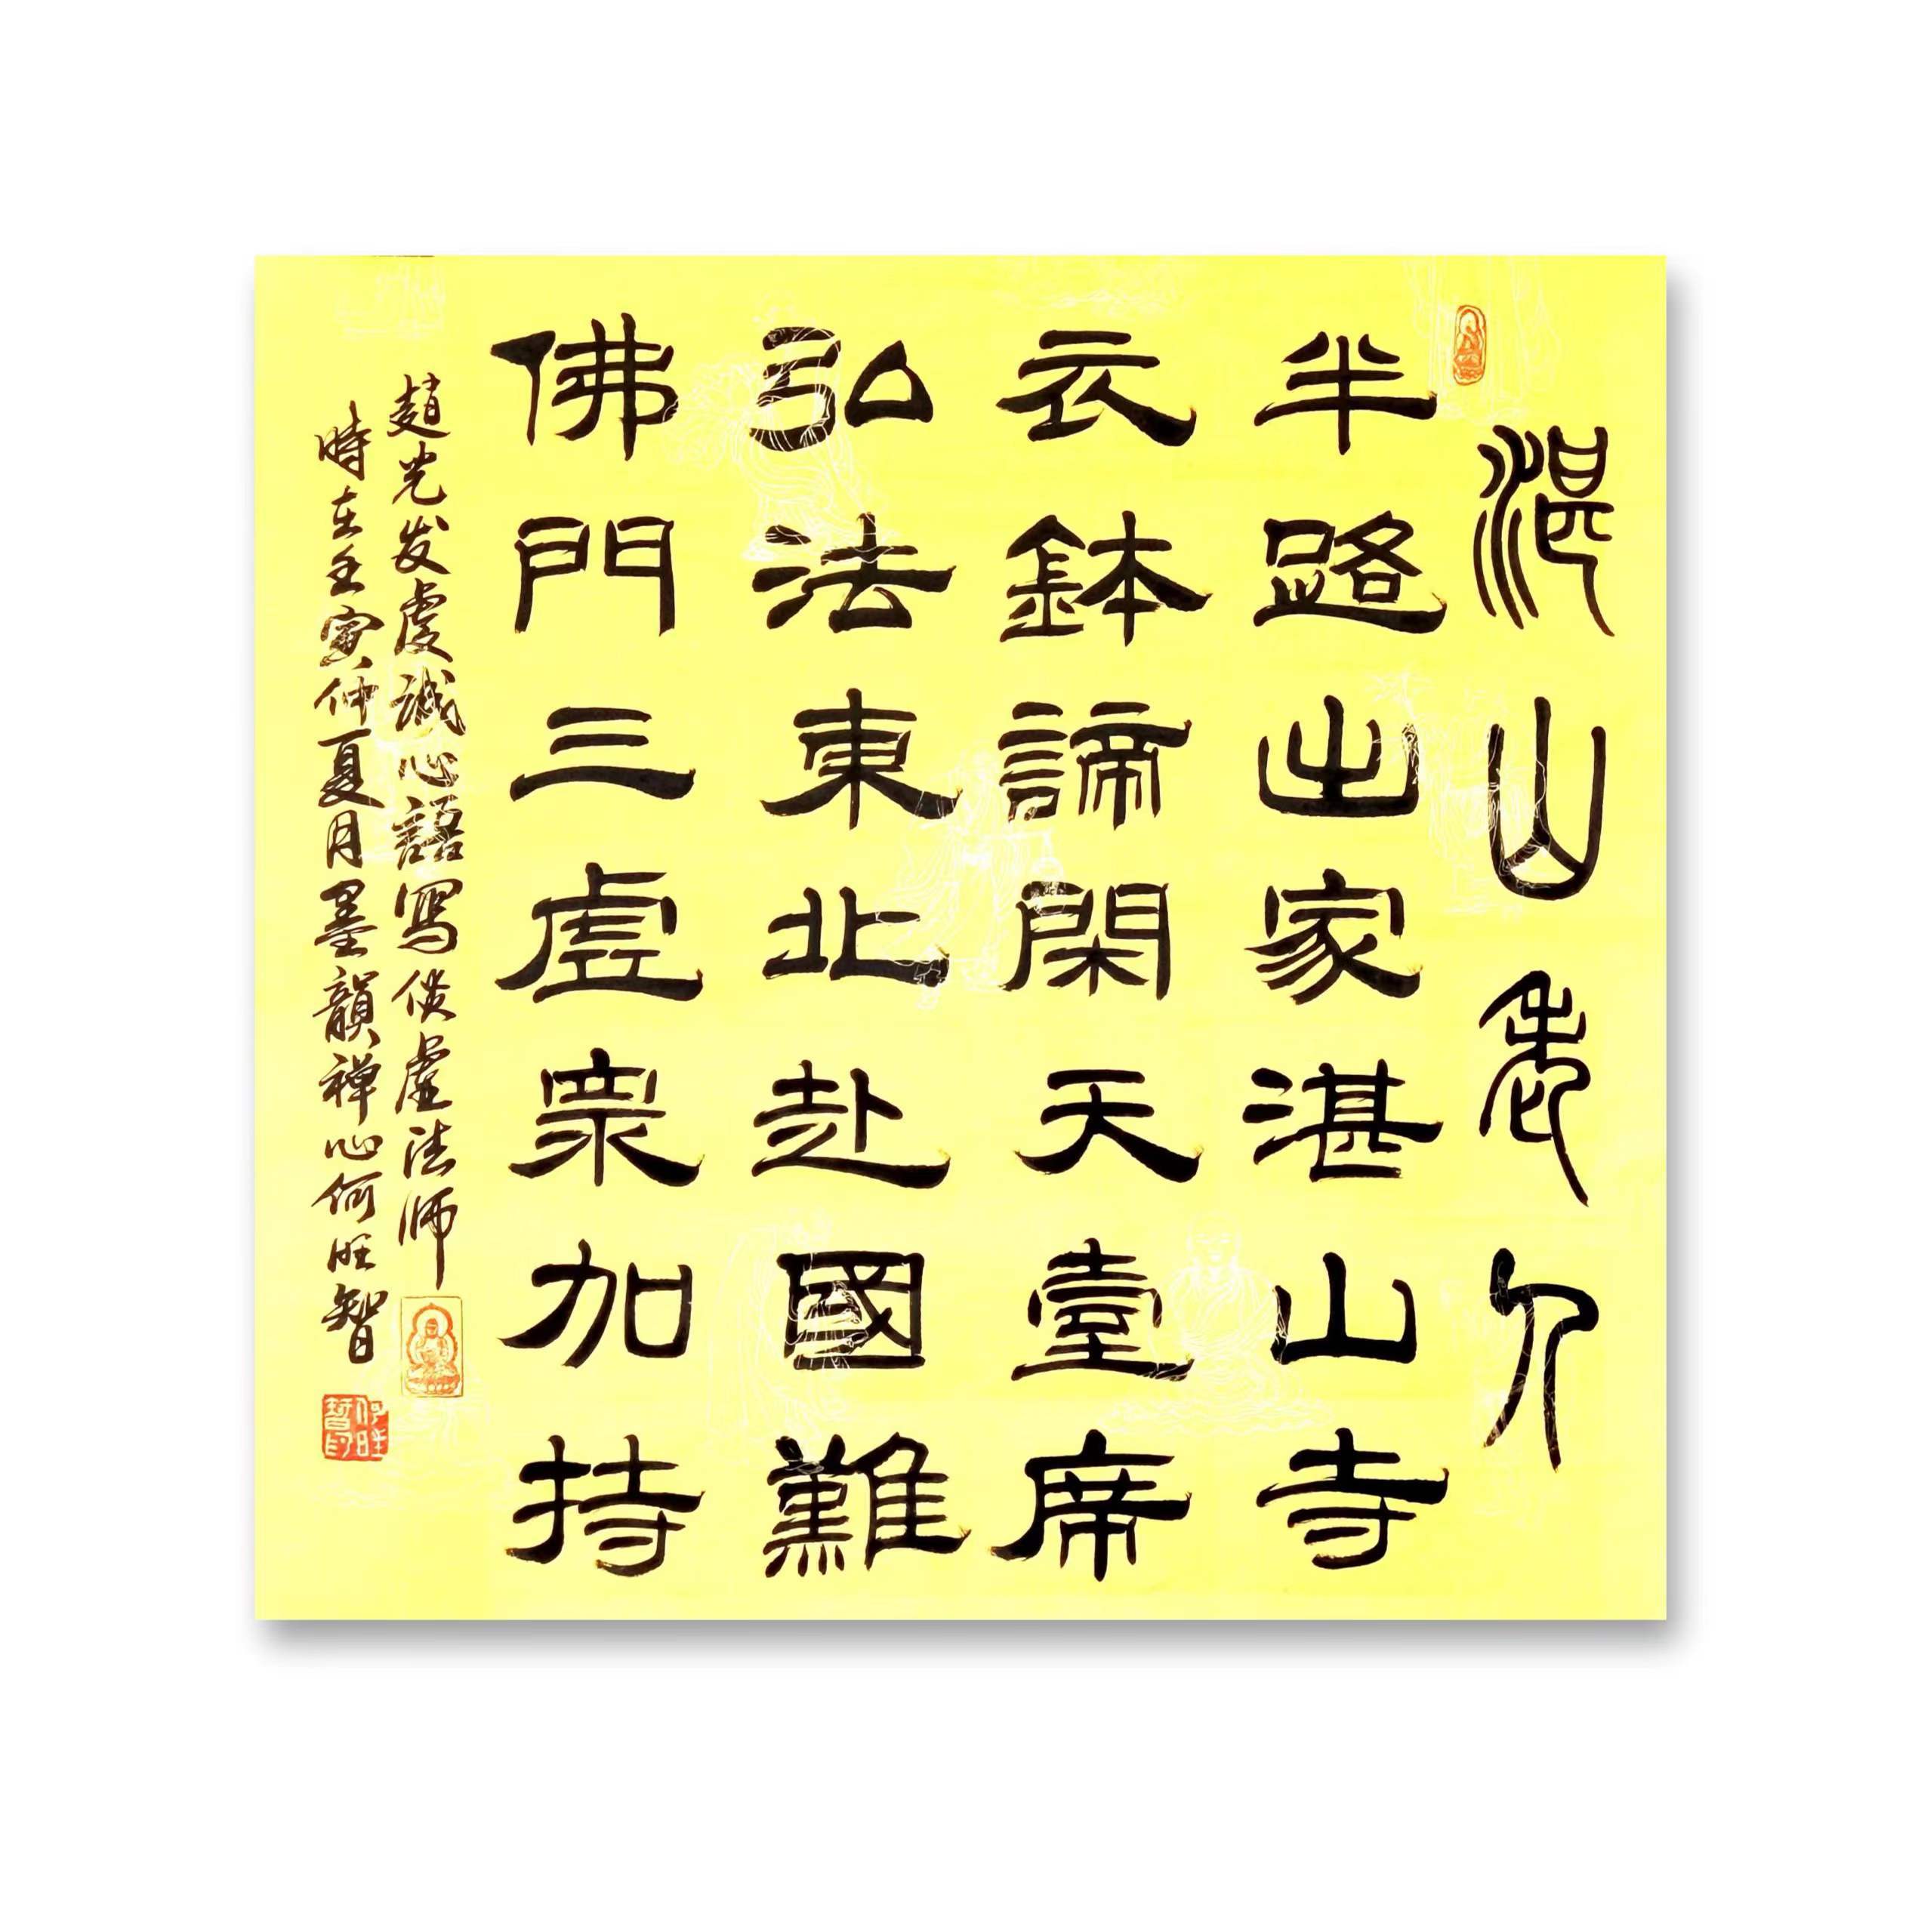 湛山老人
半路出家湛山寺
衣鉢諦閑天臺席
弘法東北赴國難
佛門三虛衆加持
趙光发虔誠心語寫倓虛法师
時在壬寅仲夏月墨韻禅心何旺智
何旺智印